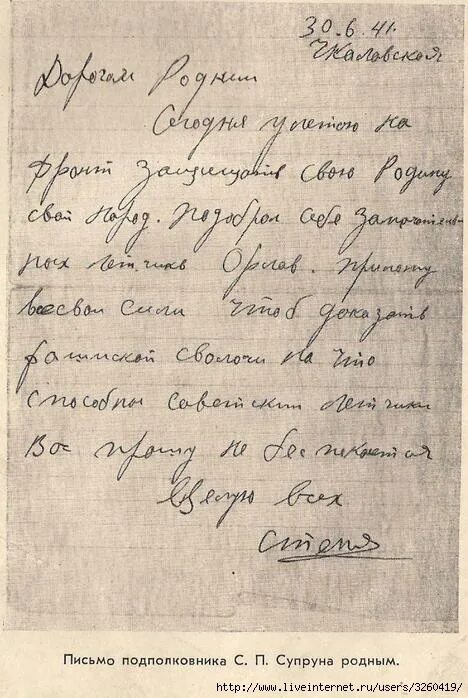 30.6.41.
Чкаловская
Дорогим Родным
Сегодня улетаю на
фронт защищать свою Родину
свой народ. Подобрал себе замечатель-
ных летчиков Орлов. приложу
все свои силы чтоб доказать
фашисткой сволочи на что
способны советские летчики
Вас прошу не беспокоется
Целую всех
Степа
Письмо подполковника С. П. Супруна родным.
http://www.liveinternet.ru/users/3260419/